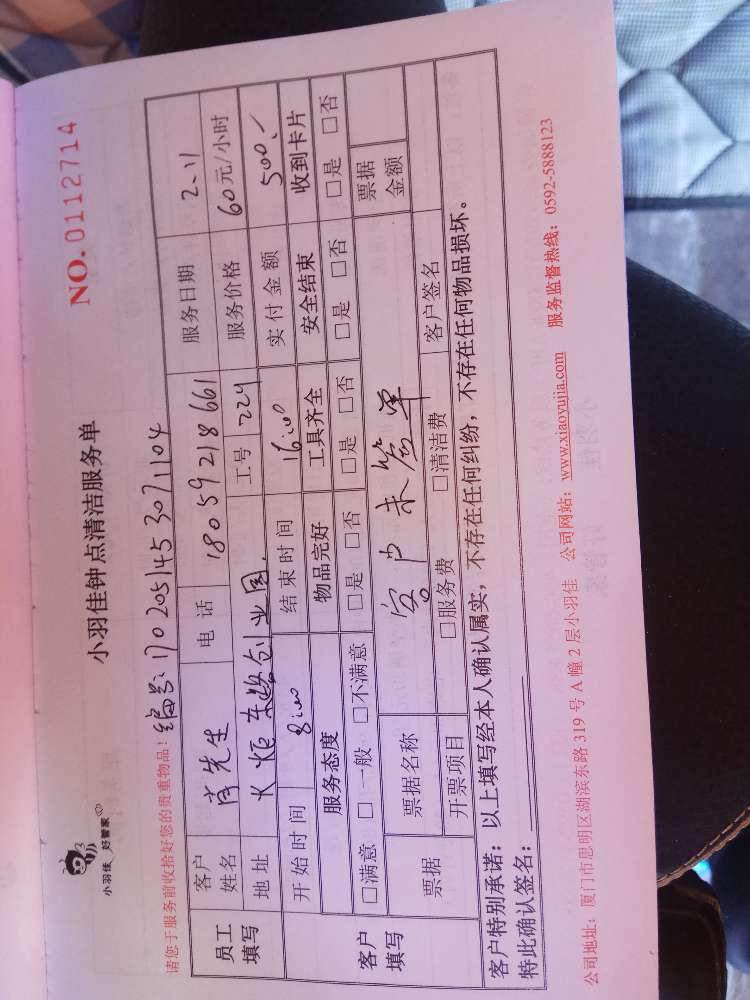 小羽佳 好管家
小羽佳钟点清洁服务单
NO. 0112714
请您于服务前收拾好您的贵重物品！ 编号: 170205145 3071104
员工填写 客户姓名 肖先生 电 话 18059218661 服务日期 2.11
地 址 火炬东路创业园. 工号 224 服务价格 60元/小时
开始时间 8:00 结束时间 16:00 实付金额 500.
客户填写 服务态度 物品完好 工具齐全 安全结束 收到卡片
□满意 □一般 □不满意 □是 □否 □是 □否 □是 □否 □是 □否
票据 票据名称 客户未签单 票据金额
开票项目 □服务费 □清洁费 客户签名
客户特别承诺：以上填写经本人确认属实，不存在任何纠纷，不存在任何物品损坏。
特此确认签名：
公司地址：厦门市思明区湖滨东路 319 号 A 幢 2 层小羽佳 公司网站：www.xiaoyujia.com 服务监督热线：0592-5888123